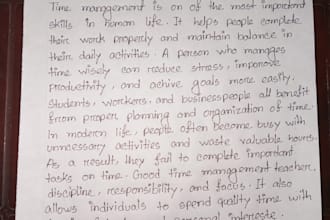 Time manegement is on of the most important
skills in human life. It helps people complete
their work properly and maintain balance in
their daily activities. A person who manages
time wisely can reduce stress, improve
productivity, and achive goals more easily.
Students, workers, and businesspeople all benefit
from proper planning and organization of time.
In modern life, people often become busy with
unnecessary activities and waste valuable hours.
As a result, they fail to complete important
tasks on time. Good time management teacher,
discipline, responsibility, and focus. It also
allows individuals to spend quality time with
personal interests.